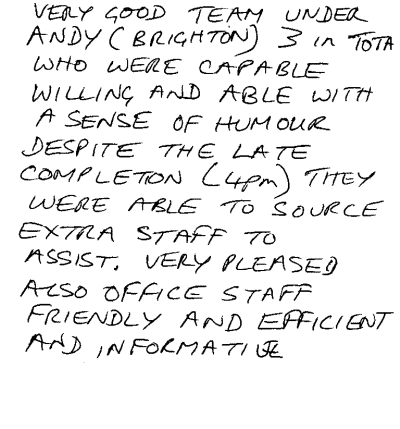 VERY GOOD TEAM UNDER
ANDY (BRIGHTON) 3 in TOTA
WHO WERE CAPABLE
WILLING AND ABLE WITH
A SENSE OF HUMOUR
DESPITE THE LATE
COMPLETION (4pm) THEY
WERE ABLE TO SOURCE
EXTRA STAFF TO
ASSIST. VERY PLEASED
ALSO OFFICE STAFF
FRIENDLY AND EFFICIENT
AND INFORMATIVE